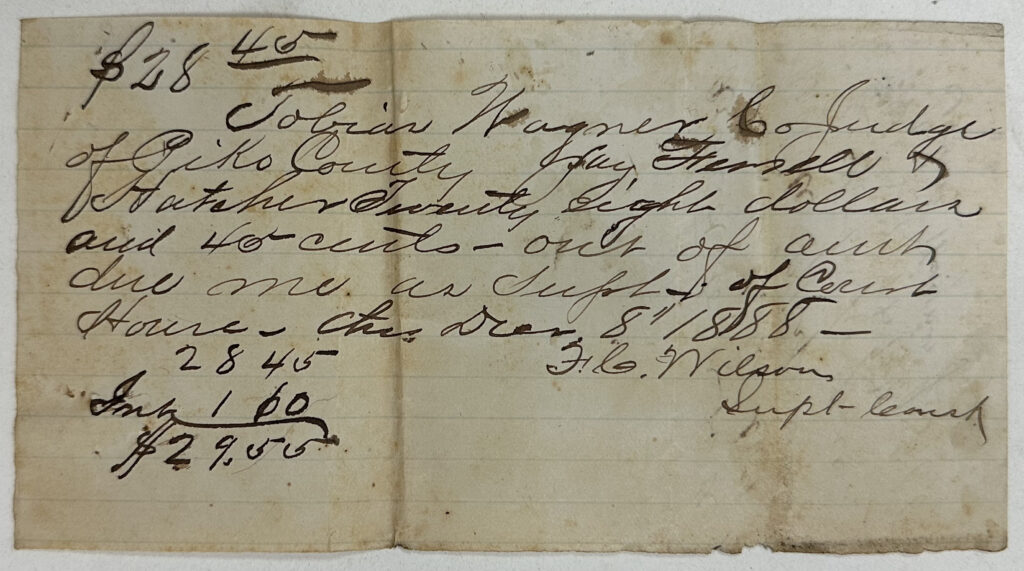 $28 45
Tobias Wagner Co Judge
of Pike County Pay Ferrell &
Hatcher Twenty Eight dollars
and 45 cents - out of amt
due me as Supt - of Court
House - this Decr 8" 1888 -
28 45
Int 1 60
$29.55
F. C. Wilson
Supt - Const